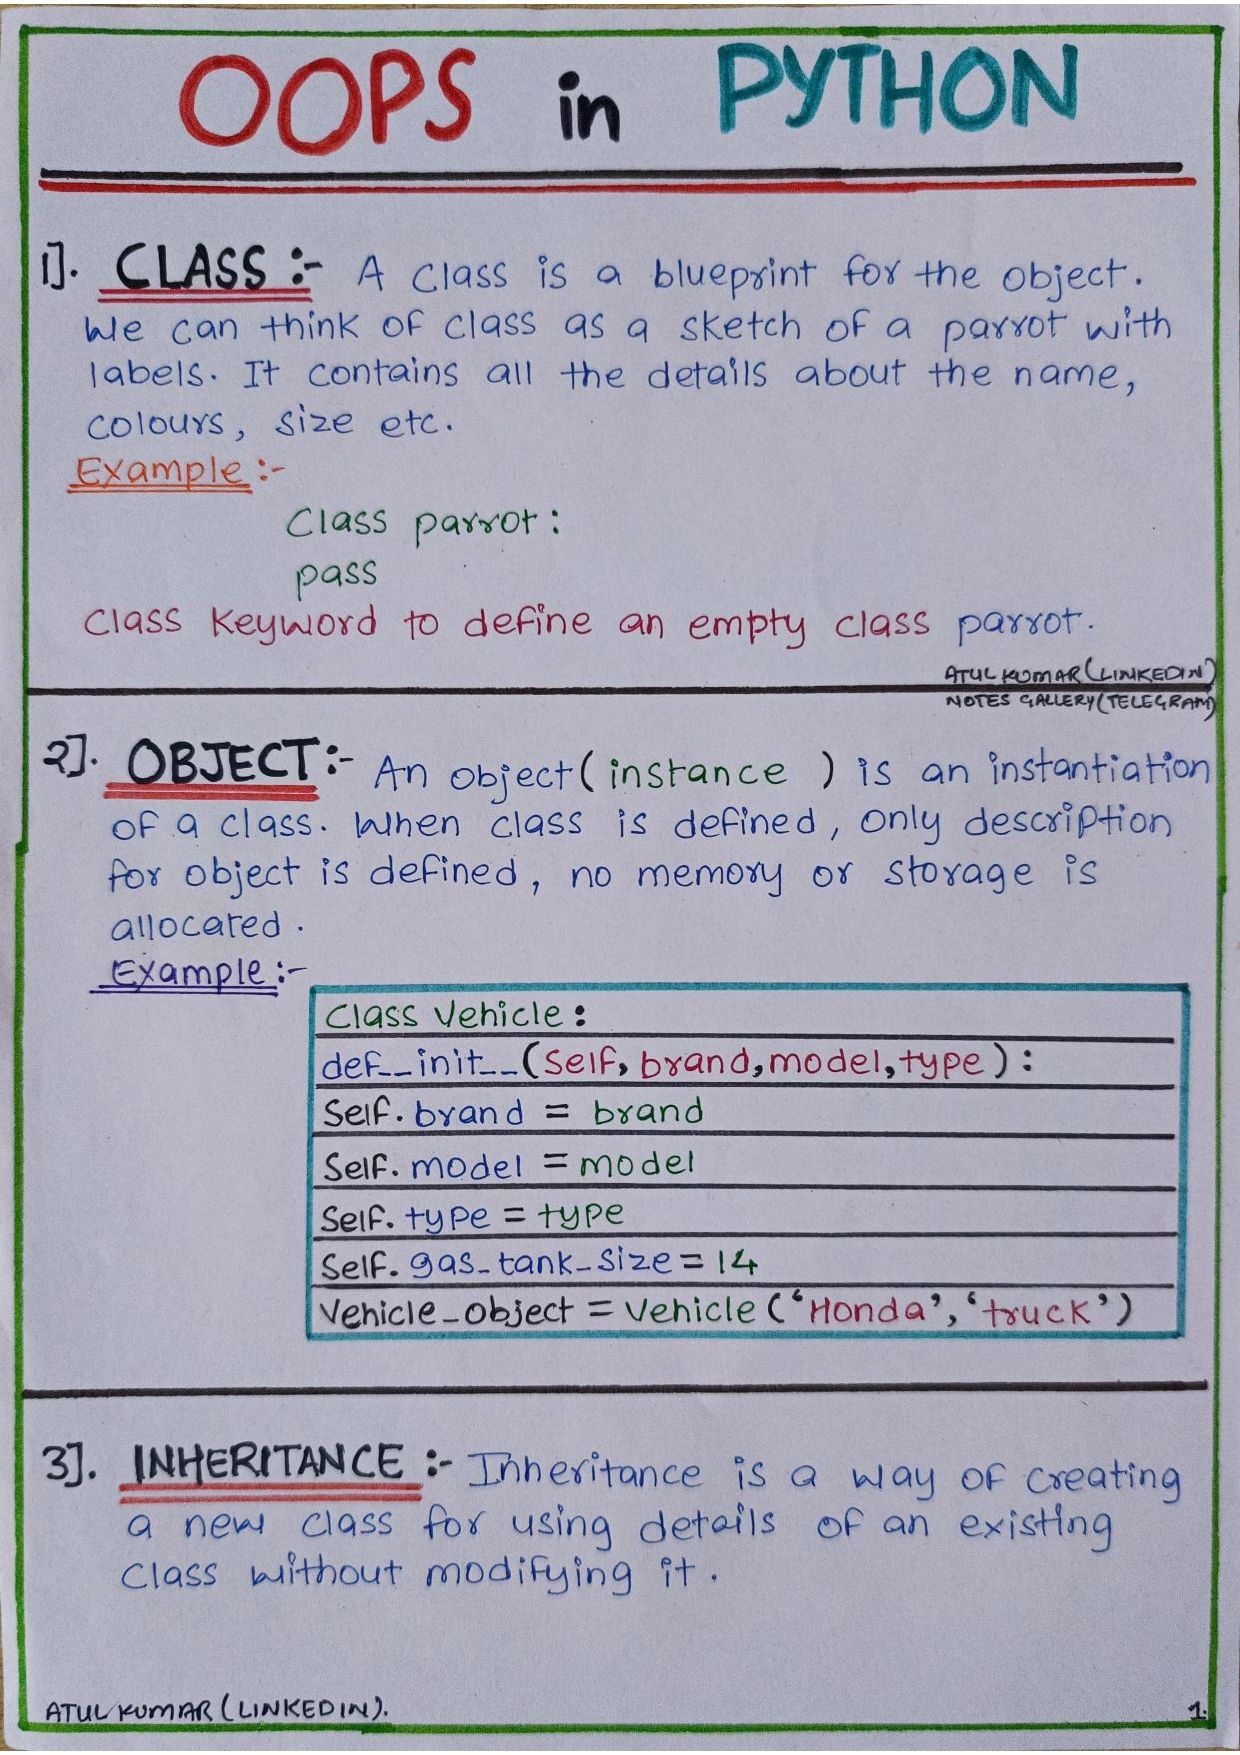 OOPS in PYTHON
1]. CLASS :- A class is a blueprint for the object.
We can think of class as a sketch of a parrot with
labels. It contains all the details about the name,
colours, size etc.
Example :-
Class parrot :
pass
Class Keyword to define an empty class parrot.
ATUL KUMAR (LINKEDIN)
NOTES GALLERY (TELEGRAM)
2]. OBJECT :- An object ( instance ) is an instantiation
of a class. When class is defined, only description
for object is defined, no memory or storage is
allocated.
Example :-
Class Vehicle :
def__init__(Self, brand, model, type) :
Self. brand = brand
Self. model = model
Self. type = type
Self. gas_tank_size = 14
Vehicle_object = Vehicle (‘Honda’, ‘truck’)
3]. INHERITANCE :- Inheritance is a way of creating
a new class for using details of an existing
class without modifying it.
ATUL KUMAR (LINKEDIN).
1.